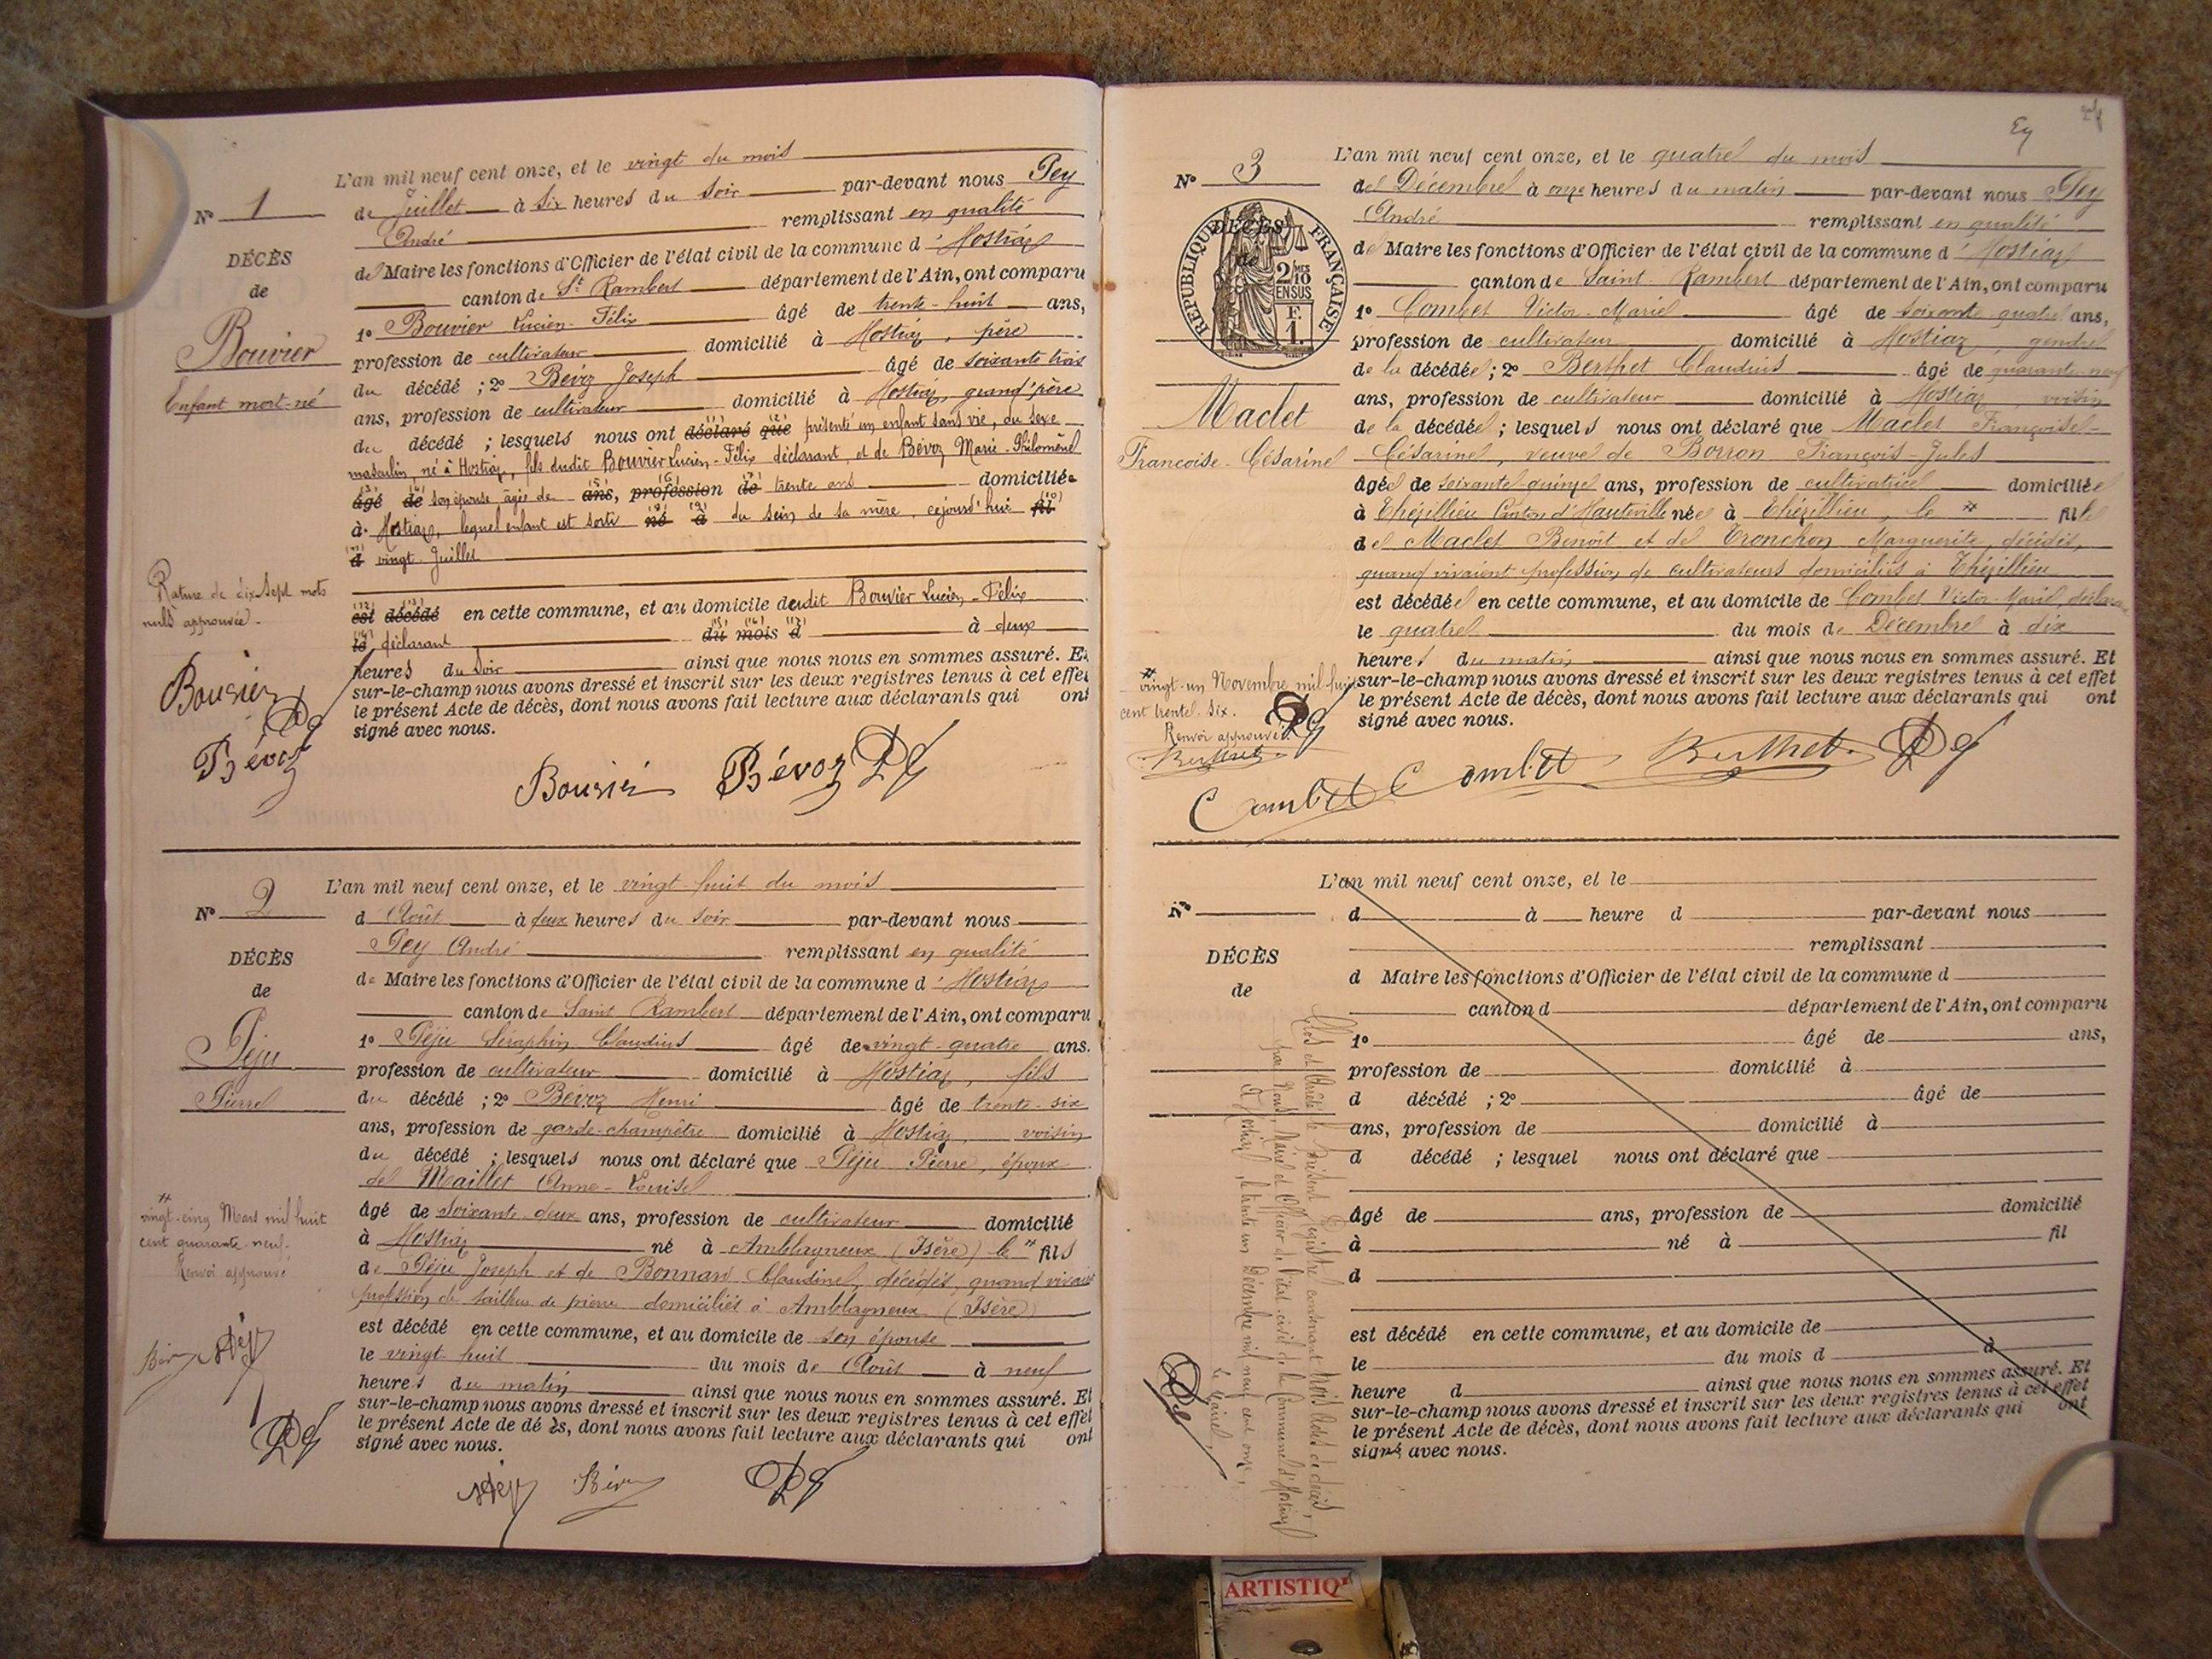 L'an mil neuf cent onze, et le vingt du mois
N° 1 de Juillet à six heures du soir par-devant nous Pey
André remplissant en qualité
DÉCÈS
de
Bouvier
Enfant mort-né
de Maire les fonctions d'Officier de l'état civil de la commune d'Hostiaz
canton de St Rambert département de l'Ain, ont comparu
1° Bouvier Lucien-Félix âgé de trente-huit ans,
profession de cultivateur domicilié à Hostiaz, père
du décédé ; 2° Bévoz Joseph âgé de soixante trois
ans, profession de cultivateur domicilié à Hostiaz, grand'père
du décédé ; lesquels nous ont déclaré que présenté un enfant sans vie, du sexe
masculin, né à Hostiaz, fils dudit Bouvier Lucien-Félix déclarant, et de Bévoz Marie-Philomène
âgé de son épouse âgée de ans, profession de trente ans domiciliée
à Hostiaz, lequel enfant est sorti né à du sein de sa mère, cejourd'hui fil
d vingt Juillet
est décédé en cette commune, et au domicile dudit Bouvier Lucien-Félix
le déclarant du mois d à deux
heures du soir ainsi que nous nous en sommes assuré. Et
sur-le-champ nous avons dressé et inscrit sur les deux registres tenus à cet effet
le présent Acte de décès, dont nous avons fait lecture aux déclarants qui ont
signé avec nous.
Rature de dix-sept mots
nuls approuvée.
Bouvier
Bévoz
Bouvier Bévoz
L'an mil neuf cent onze, et le vingt-huit du mois
N° 2 d'Août à deux heures du soir par-devant nous
Pey André remplissant en qualité
DÉCÈS
de
Péju
Pierre
de Maire les fonctions d'Officier de l'état civil de la commune d'Hostiaz
canton de Saint Rambert département de l'Ain, ont comparu
1° Péju Séraphin Claudius âgé de vingt-quatre ans.
profession de cultivateur domicilié à Hostiaz, fils
du décédé ; 2° Bévoz Henri âgé de trente-six
ans, profession de garde-champêtre domicilié à Hostiaz, voisin
du décédé ; lesquels nous ont déclaré que Péju Pierre, époux
de Maillet Anne-Louise
âgé de soixante-deux ans, profession de cultivateur domicilié
à Hostiaz né à Amblagneux (Isère) le fils
de Péju Joseph et de Bonnard Claudine, décédés, quand vivaient
profession de tailleur de pierre domiciliés à Amblagneux (Isère)
est décédé en cette commune, et au domicile de son épouse
le vingt huit du mois de Août à neuf
heures du matin ainsi que nous nous en sommes assuré. Et
sur-le-champ nous avons dressé et inscrit sur les deux registres tenus à cet effet
le présent Acte de dé ès, dont nous avons fait lecture aux déclarants qui ont
signé avec nous.
vingt-cinq Mars mil huit
cent quarante-neuf.
Renvoi approuvé
L'an mil neuf cent onze, et le quatre du mois
N° 3 de Décembre à onze heures du matin par-devant nous Pey
André remplissant en qualité
RÉPUBLIQUE FRANÇAISE
2/10
EN SUS
F.
1.
DÉCÈS
de
Maclet
Françoise-Césarine
de Maire les fonctions d'Officier de l'état civil de la commune d'Hostiaz
canton de Saint-Rambert département de l'Ain, ont comparu
1° Combet Victor-Marie âgé de soixante quatre ans,
profession de cultivateur domicilié à Hostiaz, gendre
de la décédée ; 2° Berthet Claudius âgé de quarante-neuf
ans, profession de cultivateur domicilié à Hostiaz, voisin
de la décédée ; lesquels nous ont déclaré que Maclet Françoise-
Césarine, veuve de Borron François-Jules
âgée de soixante quinze ans, profession de cultivatrice domiciliée
à Thézillieu Canton d'Hauteville née à Thézillieu, le fille
de Maclet Benoît et de Tronchon Marguerite, décédés,
quand vivaient profession de cultivateurs domiciliés à Thézillieu
est décédée en cette commune, et au domicile de Combet Victor-Marie, déclarant
le quatre du mois de Décembre à dix
heures du matin ainsi que nous nous en sommes assuré. Et
sur-le-champ nous avons dressé et inscrit sur les deux registres tenus à cet effet
le présent Acte de décès, dont nous avons fait lecture aux déclarants qui ont
signé avec nous.
vingt-un Novembre mil huit
cent trente-six.
Renvoi approuvé.
Berthet
Combet Combet Berthet
L'an mil neuf cent onze, et le
N° d à heure d par-devant nous
remplissant
DÉCÈS
de
d Maire les fonctions d'Officier de l'état civil de la commune d
canton d département de l'Ain, ont comparu
1° âgé de ans,
profession de domicilié à
d décédé ; 2° âgé de
ans, profession de domicilié à
d décédé ; lesquel nous ont déclaré que
âgé de ans, profession de domicilié
à né à fil
d
est décédé en cette commune, et au domicile de
le du mois d à
heure d ainsi que nous nous en sommes assuré. Et
sur-le-champ nous avons dressé et inscrit sur les deux registres tenus à cet effet
le présent Acte de décès, dont nous avons fait lecture aux déclarants qui ont
signé avec nous.
Clos et Arrêté le présent registre contenant trois actes de décès,
par Nous, Maire et Officier de l'état-civil de la Commune d'Hostiaz
A Hostiaz, le trente un Décembre mil neuf cent onze,
Le Maire,
ARTISTIQ